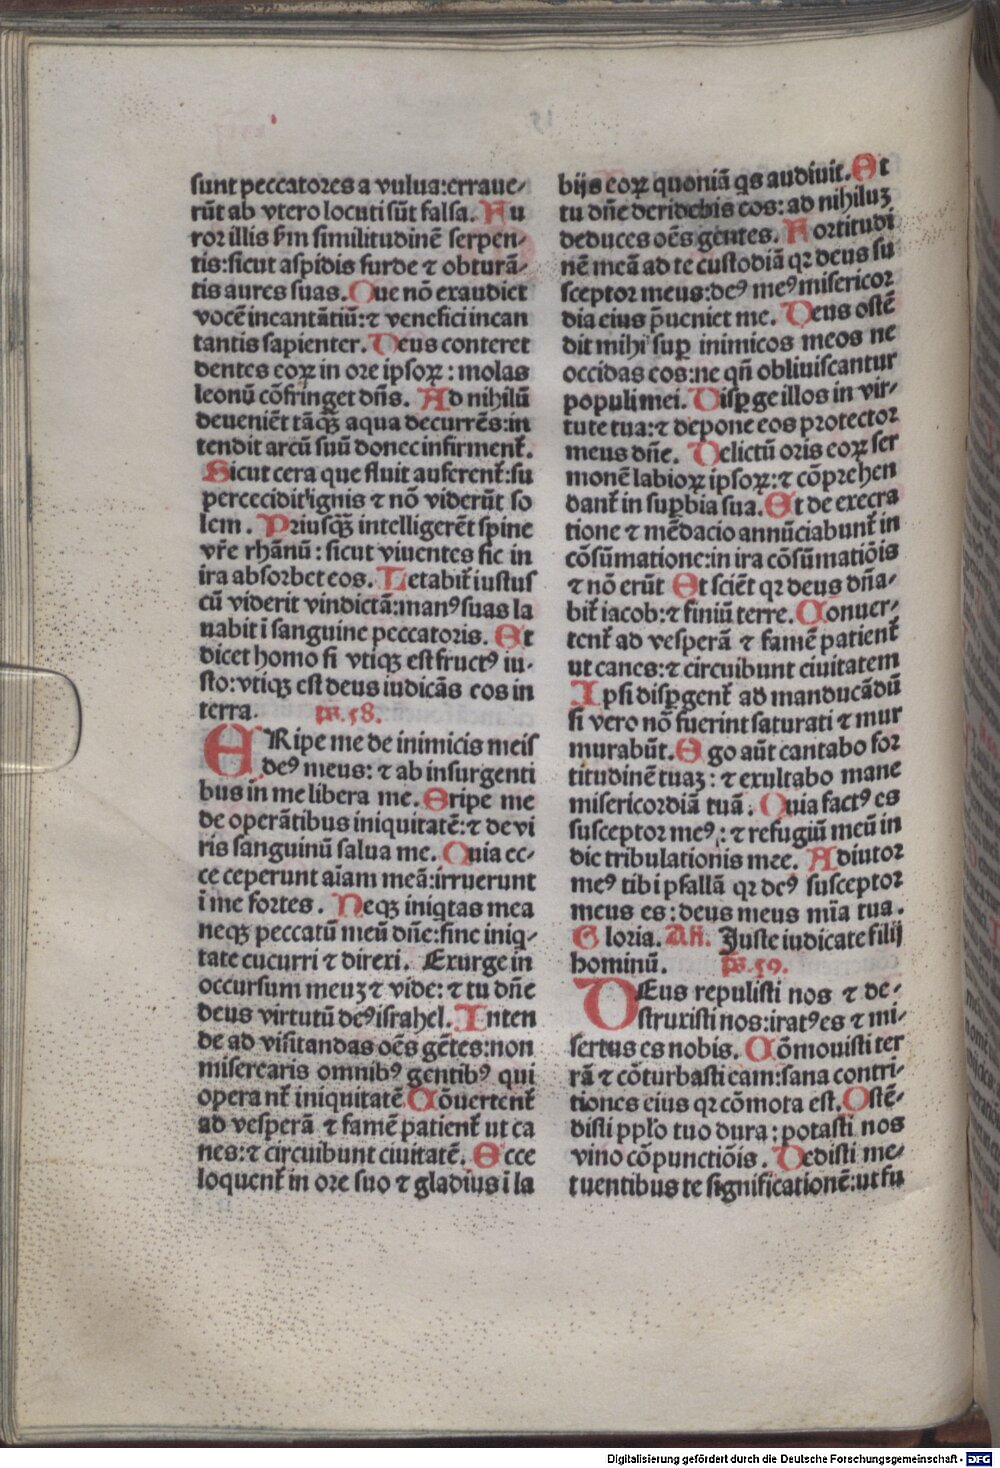 sunt peccatores a vulua:erraue-
rūt ab vtero locuti sūt falsa. Au
ror illis ẜm similitudinē serpen-
tis:sicut aspidis surde ⁊ obturā-
tis aures suas. Que nō exaudiet
vocē incantātiū:⁊ venefici incan
tantis sapienter. Deus conteret
dentes eoꝝ in ore ipsoꝝ: molas
leonū cōfringet dn̄s. Ad nihilū
deueniēt tāqꝫ aqua decurrēs:in
tendit arcū suū donec infirment᷑.
Sicut cera que fluit auferent᷑:su
percecidit ignis ⁊ nō viderūt so
lem. Priusqꝫ intelligerēt spine
vr̄e rhānū: sicut viuentes sic in
ira absorbet eos. Letabit᷑ iustus
cū viderit vindictā:manꝰ suas la
uabit ī sanguine peccatoris. Et
dicet homo si vtiqꝫ est fructꝰ iu-
sto:vtiqꝫ est deus iudicās eos in
terra. ps. 58.
ERipe me de inimicis meis
deꝰ meus: ⁊ ab insurgenti
bus in me libera me. Eripe me
de operātibus iniquitatē:⁊ de vi
ris sanguinū salua me. Quia ec-
ce ceperunt aīam meā:irruerunt
ī me fortes. Neqꝫ iniqtas mea
neqꝫ peccatū meū dn̄e:sine iniq-
tate cucurri ⁊ direxi. Exurge in
occursum meuꝫ ⁊ vide: ⁊ tu dn̄e
deus virtutū deꝰ israhel. Inten
de ad visitandas oēs gētes:non
miserearis omnibꝰ gentibꝰ qui
operant᷑ iniquitatē Cōuertent᷑
ad vesperā ⁊ famē patient᷑ ut ca
nes:⁊ circuibunt ciuitatē. Ecce
loquent᷑ in ore suo ⁊ gladius ī la
bijs eoꝝ quoniā qs audiuit. Et
tu dn̄e deridebis eos: ad nihiluꝫ
deduces oēs gentes. Fortitudi
nē meā ad te custodiā qꝛ deus su
sceptor meus:deꝰ meꝰ misericor
dia eius p̄ueniet me. Deus ostē
dit mihi suꝑ inimicos meos ne
occidas eos:ne qn̄ obliuiscantur
populi mei. Disꝑge illos in vir-
tute tua:⁊ depone eos protector
meus dn̄e. Delictū oris eoꝝ ser
monē labioꝝ ipsoꝝ:⁊ cōprehen
dant᷑ in suꝑbia sua. Et de execra
tione ⁊ mēdacio annūciabunt᷑ in
cōsūmatione:in ira cōsūmatiōis
⁊ nō erūt Et sciēt qꝛ deus dn̄a-
bit᷑ iacob:⁊ finiū terre. Conuer-
tent᷑ ad vesperā ⁊ famē patient᷑
ut canes:⁊ circuibunt ciuitatem
Ipsi disꝑgent᷑ ad manducādū
si vero nō fuerint saturati ⁊ mur
murabūt. Ego aūt cantabo for
titudinē tuaꝫ: ⁊ exultabo mane
misericordiā tuā. Quia factꝰ es
susceptor meꝰ: ⁊ refugiū meū in
die tribulationis mee. Adiutor
meꝰ tibi psallā qꝛ deꝰ susceptor
meus es: deus meus mīa tua.
Gloria. An̄. Juste iudicate filij
hominū. ps. 59.
DEus repulisti nos ⁊ de-
struxisti nos:iratꝰ es ⁊ mi-
sertus es nobis. Cōmouisti ter
rā ⁊ cōturbasti eam:sana contri-
tiones eius qꝛ cōmota est. Ostē-
disti pplo tuo dura: potasti nos
vino cōpunctiōis. Dedisti me-
tuentibus te significationē:ut fu
Digitalisierung gefördert durch die Deutsche Forschungsgemeinschaft - DFG